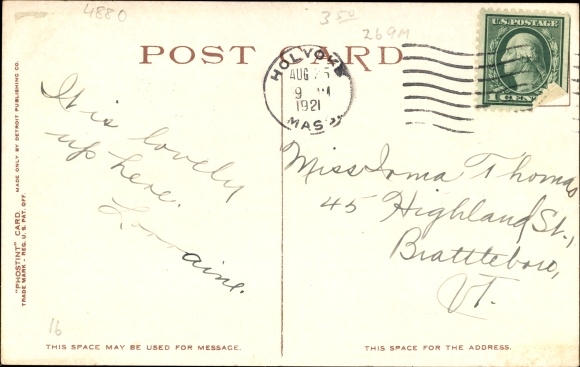 4880
3 50
269M
POST CARD
HOLYOKE
AUG 25
9 M
1921
MASS
U.S. POSTAGE
1 CENT
It is lovely
up here.
Lorraine.
Miss Ioma Thomas
45 Highland St.,
Brattleboro,
VT.
"PHOSTINT" CARD MADE ONLY BY DETROIT PUBLISHING CO.
TRADE MARK - REG. U.S. PAT. OFF.
16
THIS SPACE MAY BE USED FOR MESSAGE.
THIS SPACE FOR THE ADDRESS.